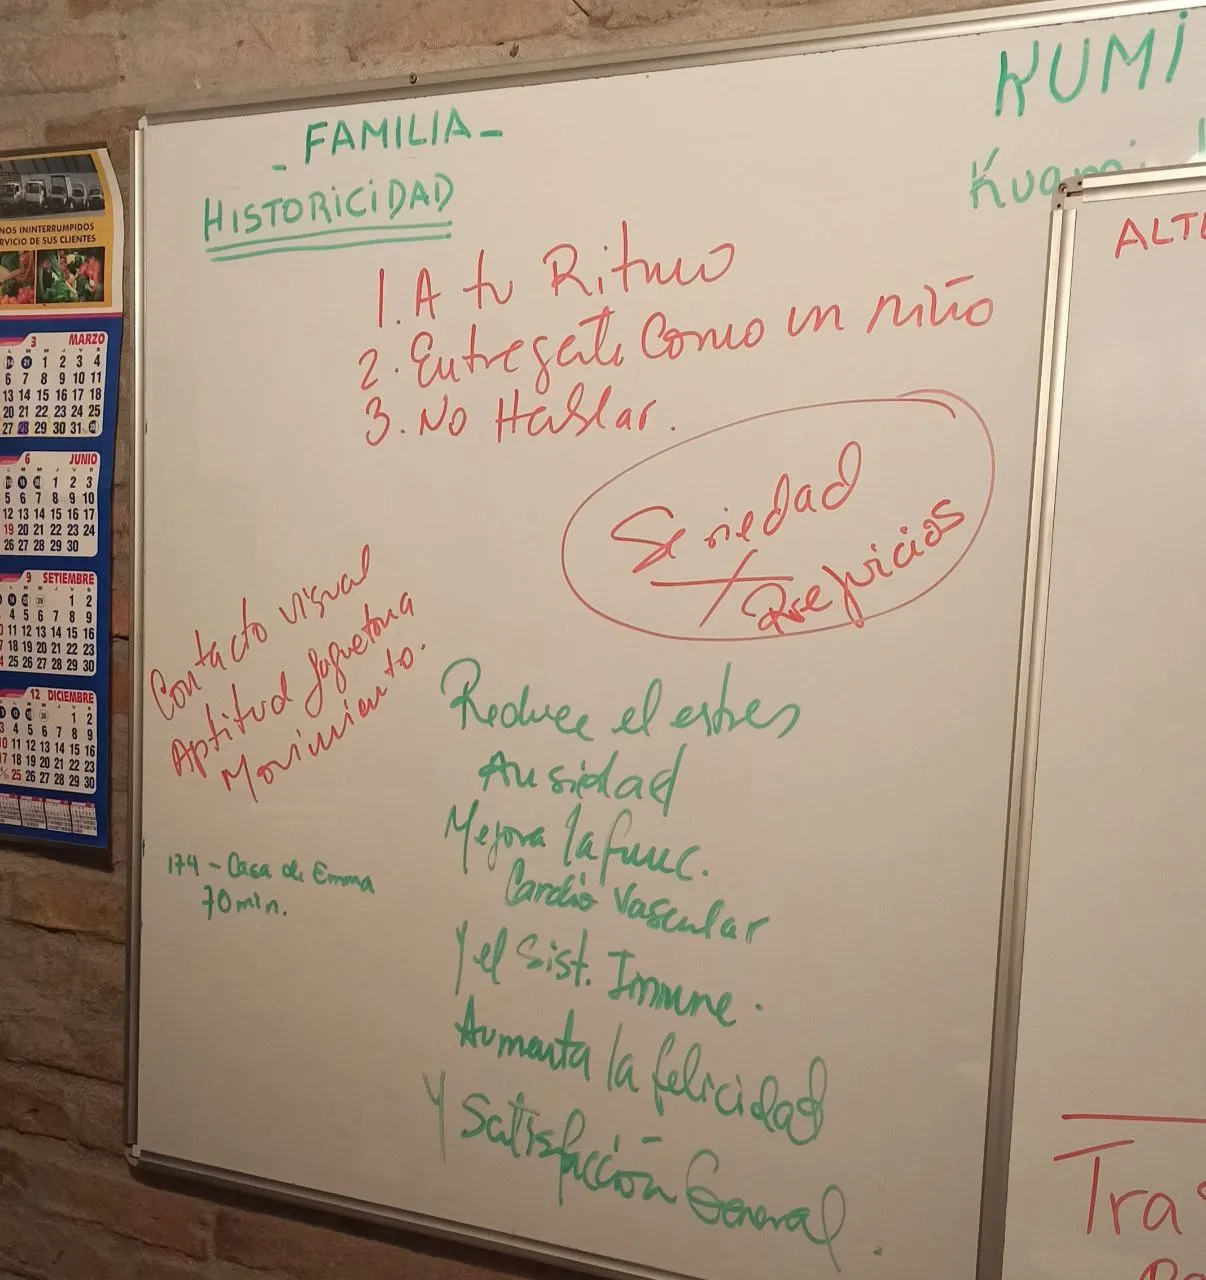 - FAMILIA -
HISTORICIDAD
1. A tu Ritmo
2. Entregate Como un niño
3. No Hablar.
Seriedad
Prejuicios
Contacto visual
Aptitud Juguetona
Movimiento.
Reduce el estres
Ansiedad
Mejora la func.
Cardio Vascular
y el Sist. Inmune.
Aumenta la felicidad
Y Satisfacción General.
174 - Casa de Emma
70 min.
KUMI
ALTE
Tra
NOS ININTERRUMPIDOS
RVICIO DE SUS CLIENTES
3 MARZO
1 2 3 4
6 7 8 9 10 11
13 14 15 16 17 18
20 21 22 23 24 25
27 28 29 30 31
6 JUNIO
1 2 3
5 6 7 8 9 10
12 13 14 15 16 17
19 20 21 22 23 24
26 27 28 29 30
9 SETIEMBRE
1 2
4 5 6 7 8 9
11 12 13 14 15 16
18 19 20 21 22 23
25 26 27 28 29 30
12 DICIEMBRE
1 2
3 4 5 6 7 8 9
10 11 12 13 14 15 16
17 18 19 20 21 22 23
25 26 27 28 29 30